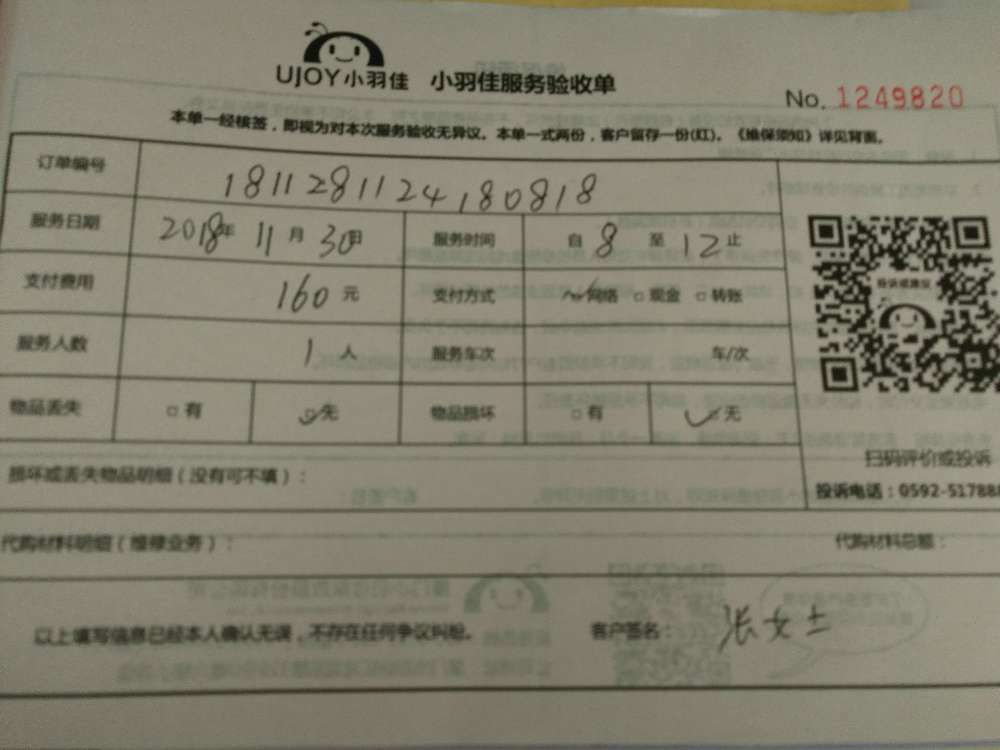 UJOY小羽佳 小羽佳服务验收单
No. 1249820
本单一经核签，即视为对本次服务验收无异议。本单一式两份，客户留存一份(红)。《维保须知》详见背面。
订单编号 1811281124180818
服务日期 2018年 11 月 30日 服务时间 自 8 至 12 止
支付费用 160 元 支付方式 ✓网络 □现金 □转账
投诉或建议
服务人数 1 人 服务车次 车/次
物品丢失 □有 ☑无 物品损坏 □有 ☑无
扫码评价或投诉
损坏或丢失物品明细（没有可不填）：
投诉电话：0592-517888
代购材料明细（维修业务）： 代购材料总额：
以上填写信息已经本人确认无误，不存在任何争议纠纷。 客户签名： 张女士